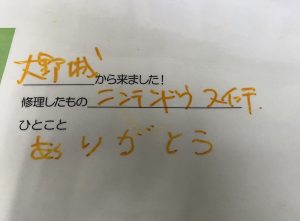 大野城から来ました!
修理したものニンテンドウ スイッチ.
ひとこと
ありがとう